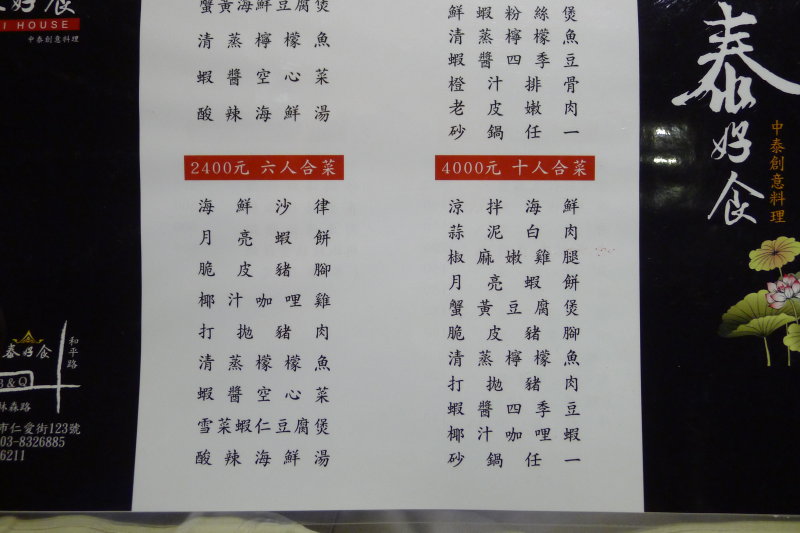 好食
I HOUSE
中泰創意料理
蟹黃海鮮豆腐煲
清蒸檸檬魚
蝦醬空心菜
酸辣海鮮湯
2400元 六人合菜
海鮮沙律
月亮蝦餅
脆皮豬腳
椰汁咖哩雞
打拋豬肉
清蒸檬檬魚
蝦醬空心菜
雪菜蝦仁豆腐煲
酸辣海鮮湯
鮮蝦粉絲煲
清蒸檸檬魚
蝦醬四季豆
橙汁排骨
老皮嫩肉
砂鍋任一
4000元 十人合菜
涼拌海鮮
蒜泥白肉
椒麻嫩雞腿
月亮蝦餅
蟹黃豆腐煲
脆皮豬腳
清蒸檸檬魚
打拋豬肉
蝦醬四季豆
椰汁咖哩蝦
砂鍋任一
泰好食
中泰創意料理
泰好食
和平路
B&Q
林森路
市仁愛街123號
03-8326885
6211